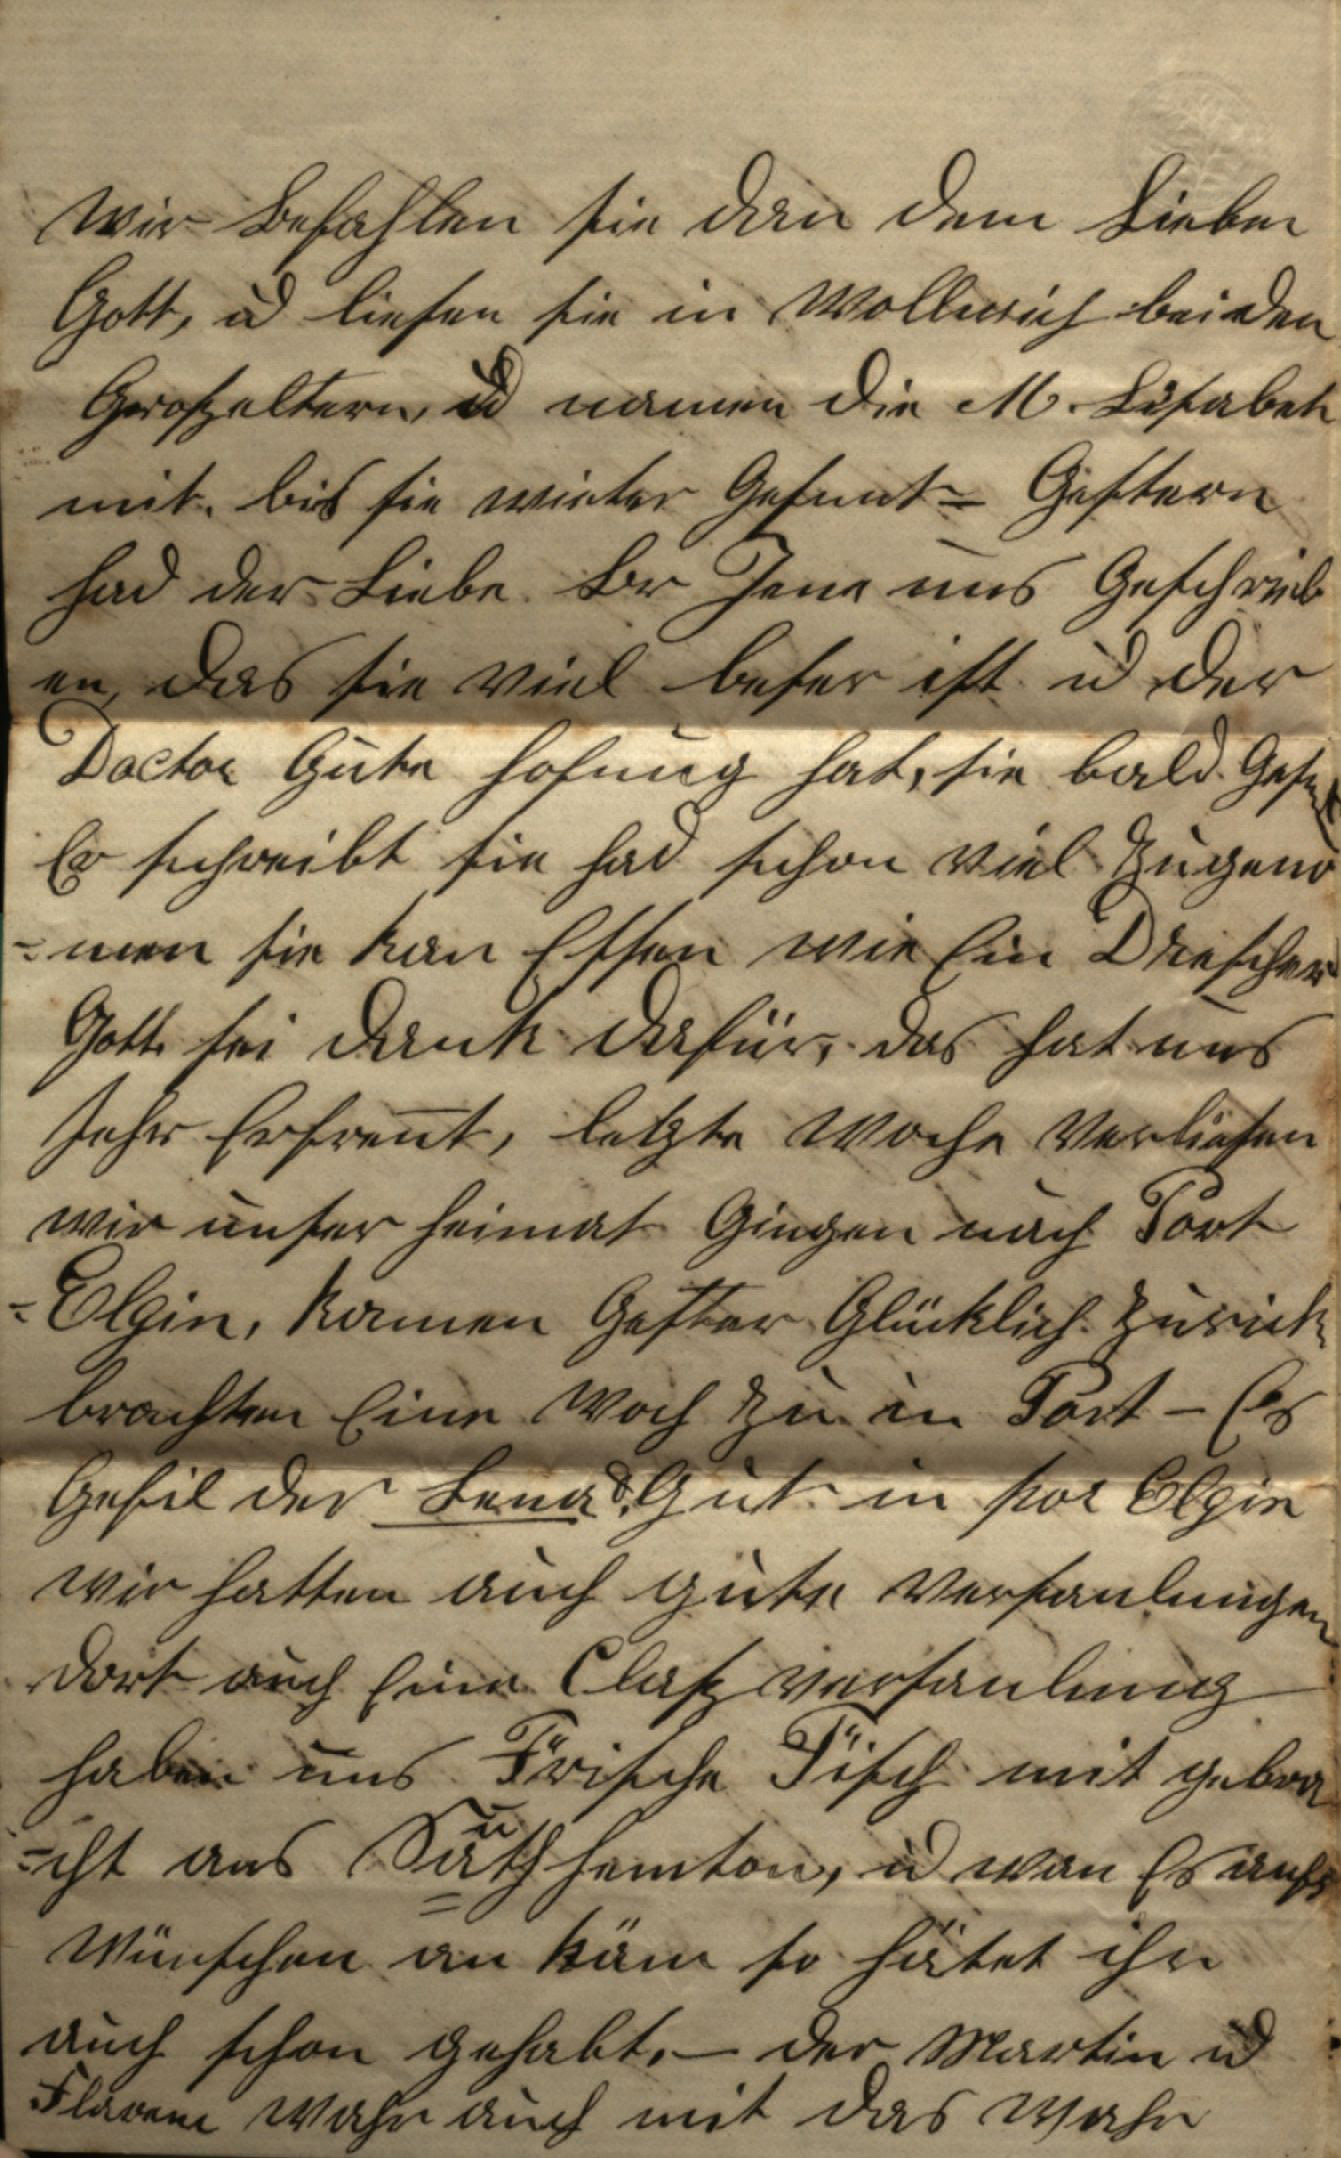 Wir Befahlen sie dan dem Lieben
Gott, ud liesen sie in Wollwich bei den
Groszeltern, ud namen die M. Lisabeth
mit. bis sie wieter Gesunt = Gestern
had der Liebe Br Jene uns Geschrieb
en, das sie viel beser ist ud der
Doctor Gute hofnug hat, sie bald Gesunt
Er schreibt sie had schon viel Zugeno
= men sie kan Essen wie Ein Drescher
Gott sei Dank dafür, das hat uns
Sehr Erfreut, letzte Woche Verliesen
wir unser heimat Gingen nach Port
= Elgin, kamen Gester Glücklich Zurick
brachten Eine Woch Zu in Port – Es
Gefil der Lena Gut in por Elgin
wir hatten auch gute Versamlungen
dort auch Eine Clasz versamlung
haben uns Frische Fisch mit gebra
= cht aus Suthhemton, ud wan Es aufs
Wünschen an käm so hätet ihr
auch schon gehabt. – der Martin ud
Flavene Wahr auch mit das Wahr